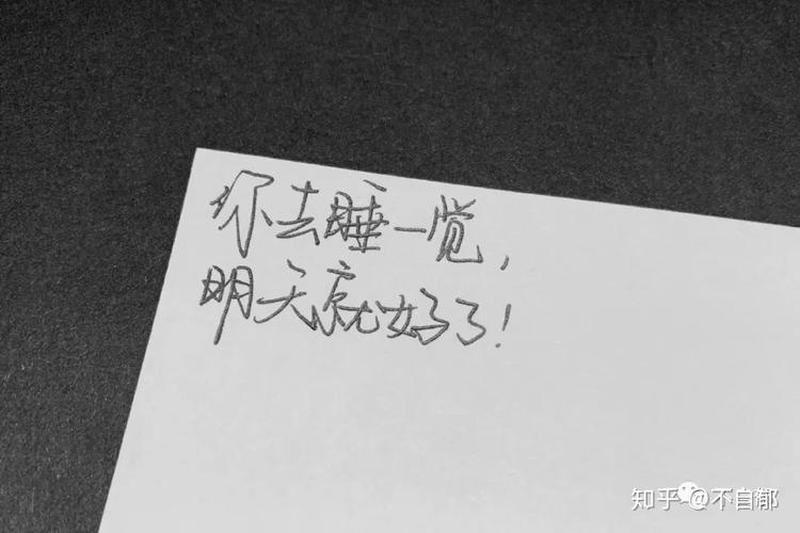 你去睡一觉,
明天就好了!
知乎 @不自郁